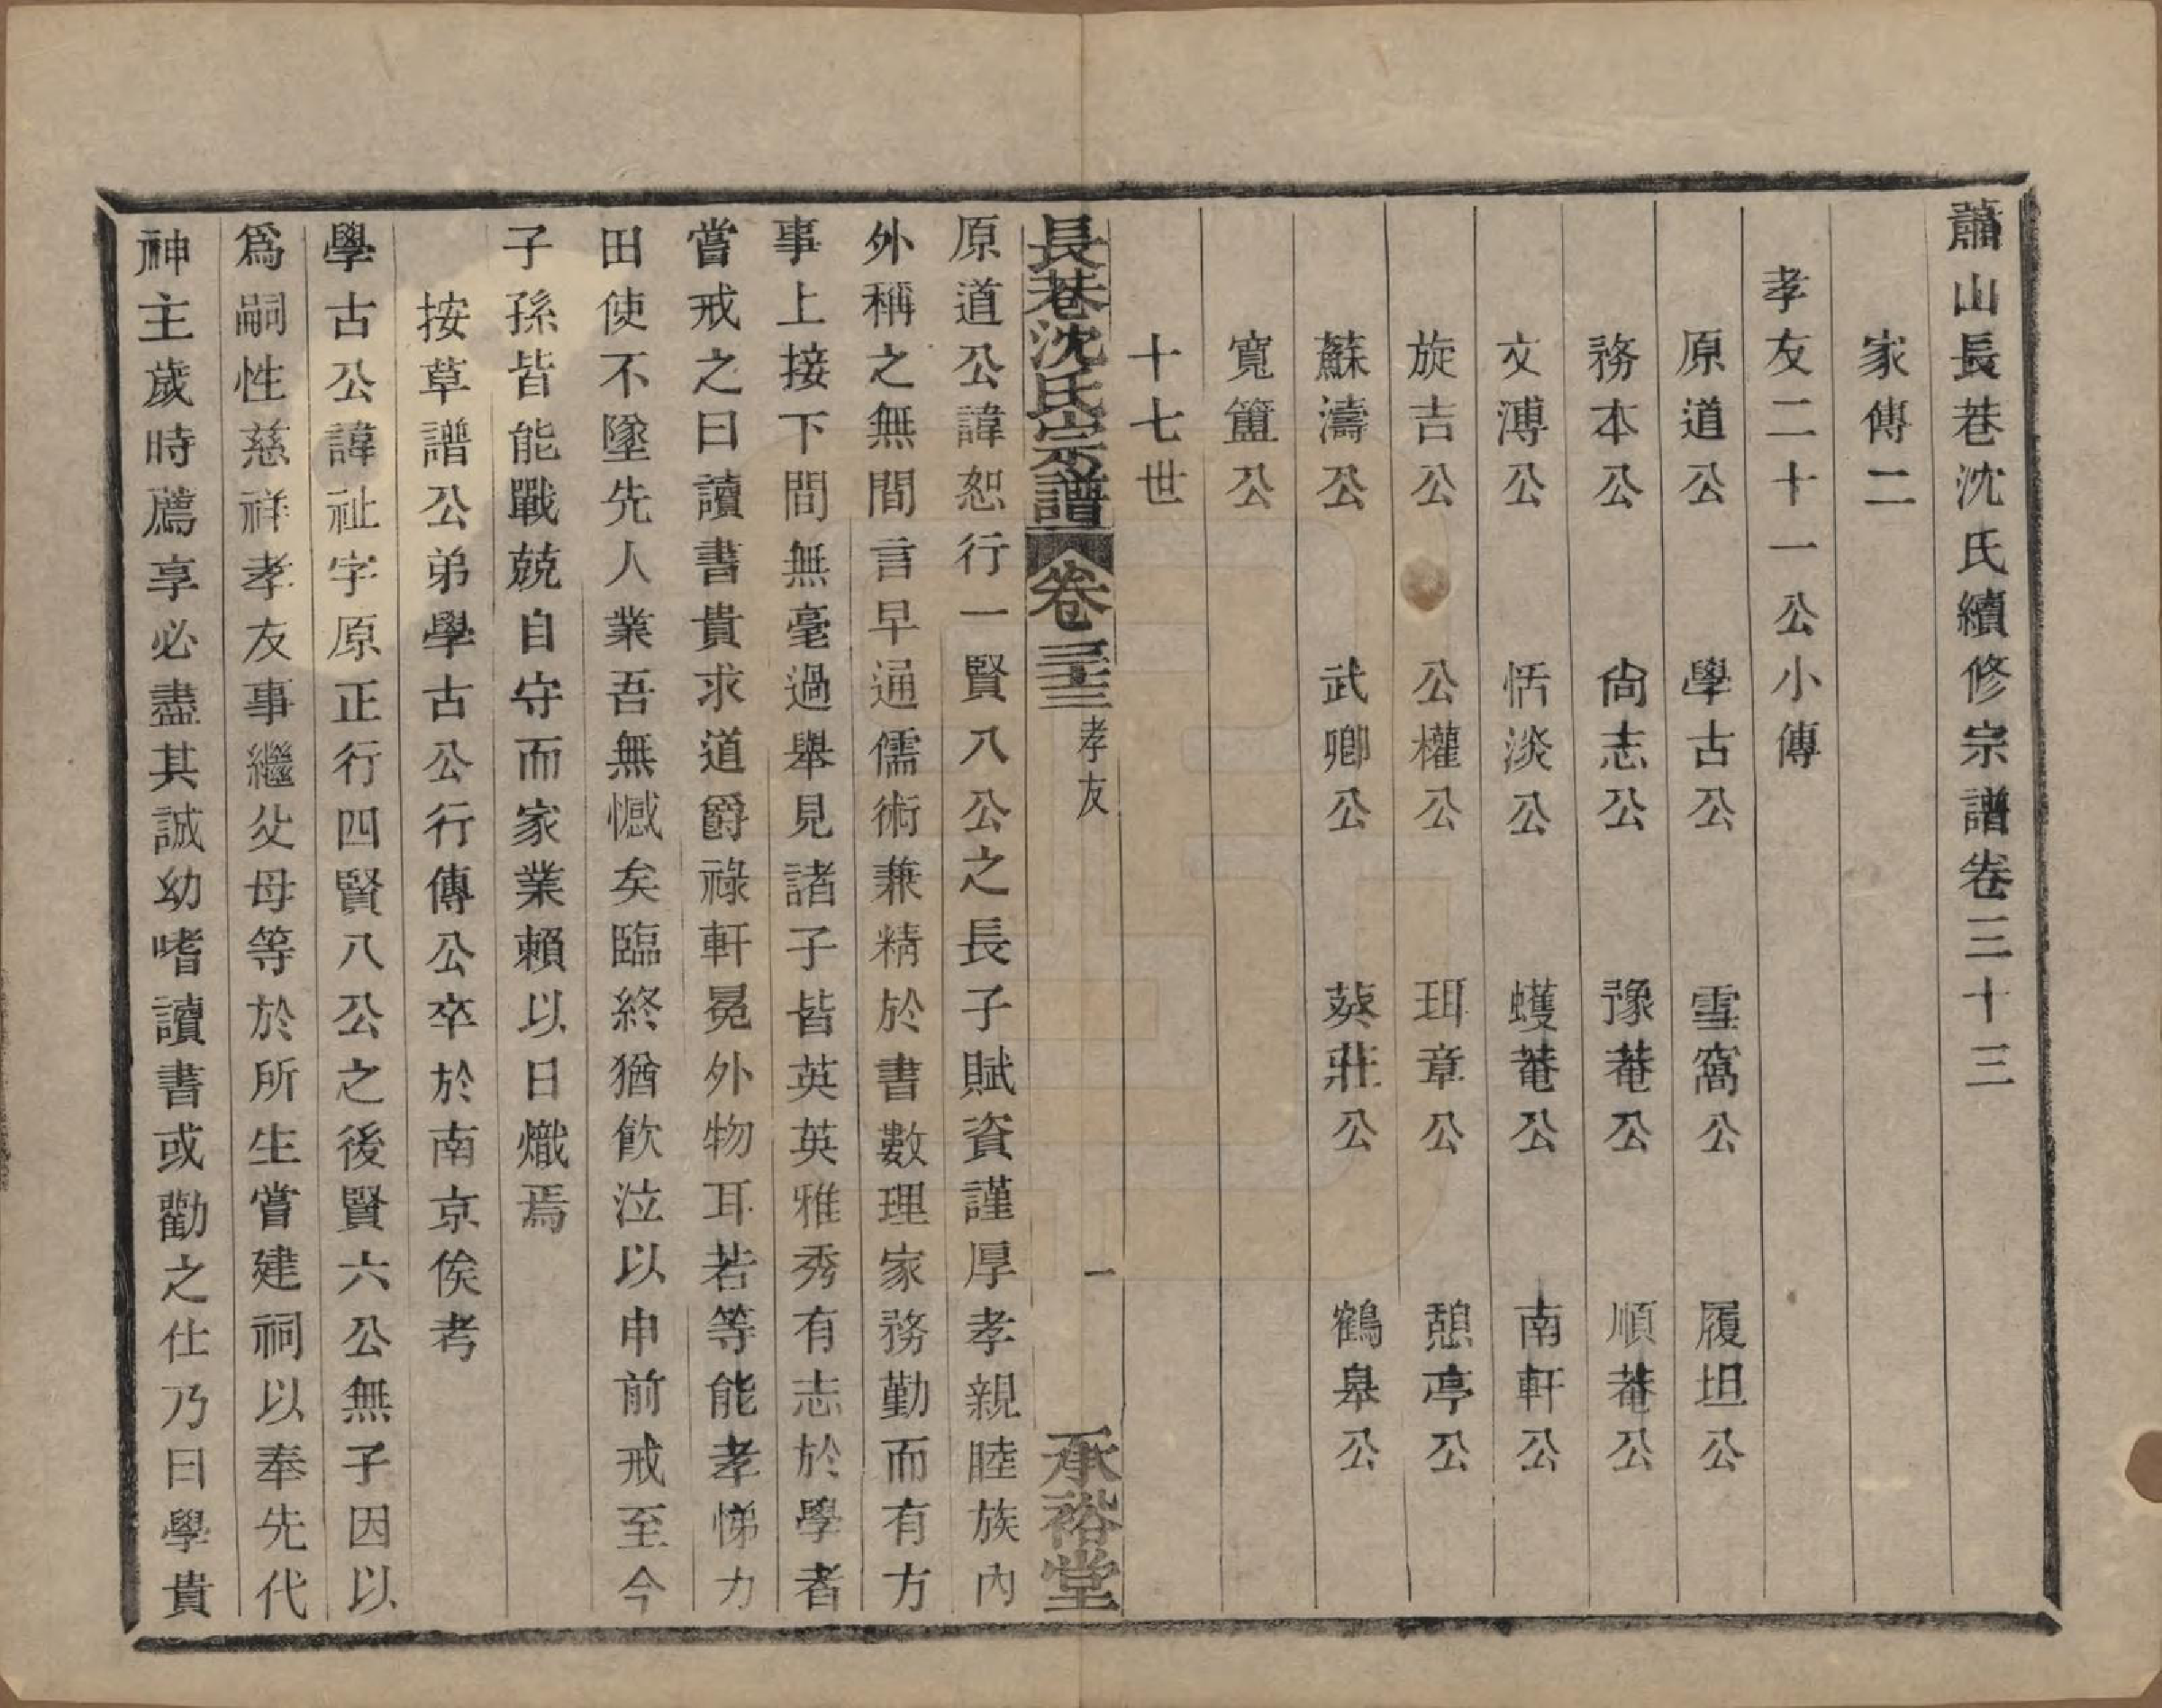 蕭山長巷沈氏續修宗譜卷三十三
家傳二
孝友二十一公小傳
原道公 學古公 雪窩公 履坦公
務本公 尙志公 豫菴公 順菴公
文溥公 恬淡公 蠖菴公 南軒公
旋吉公 公權公 珥章公 憩亭公
蘇濤公 武卿公 葵莊公 鶴皋公
寬簠公
十七世
長巷沈氏宗譜 卷三十三 孝友 一 承裕堂
原道公諱恕行一賢八公之長子賦資謹厚孝親睦族內
外稱之無間言早通儒術兼精於書數理家務勤而有方
事上接下間無毫過舉見諸子皆英英雅秀有志於學者
嘗戒之曰讀書貴求道爵祿軒冕外物耳若等能孝悌力
田使不墜先人業吾無憾矣臨終猶飮泣以申前戒至今
子孫皆能戰兢自守而家業賴以日熾焉
按草譜公弟學古公行傳公卒於南京俟考
學古公諱祉字原正行四賢八公之後賢六公無子因以
爲嗣性慈祥孝友事繼父母等於所生嘗建祠以奉先代
神主歲時薦享必盡其誠幼嗜讀書或勸之仕乃曰學貴